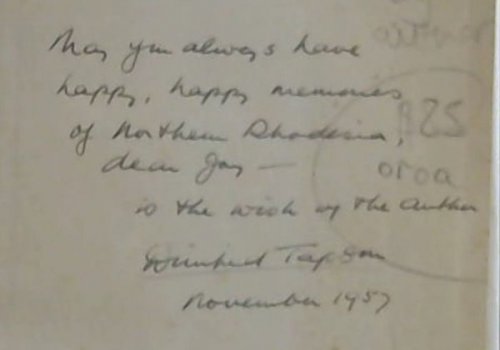 May you always have
happy, happy memories
of Northern Rhodesia,
dear Joy —
is the wish of the author
Winifred Tapson
November 1957